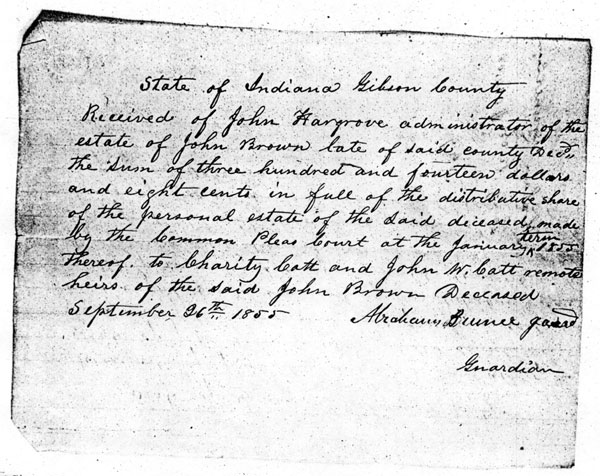 State of Indiana Gibson County
Received of John Hargrove administrator of the
estate of John Brown late of said county Decd,,
the sum of three hundred and fourteen dollars
and eight cents in full of the distributive share
of the personal estate of the said diceased made
by the Common Pleas Court at the January term 1855
thereof to Charity Catt and John W. Catt remote
heirs of the said John Brown Deceased
September 26th 1855 Abraham
Guardian